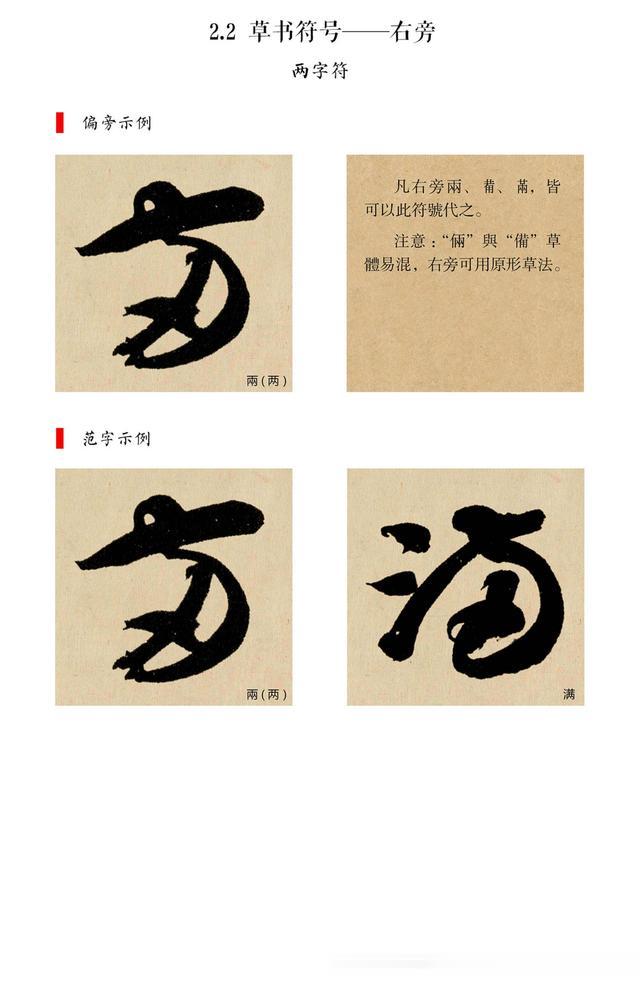 2.2 草书符号——右旁
两字符
偏旁示例
凡右旁兩、𤰇、㒼，皆
可以此符號代之。
注意：“倆”與“備”草
體易混，右旁可用原形草法。
兩(两)
范字示例
兩(两)
满